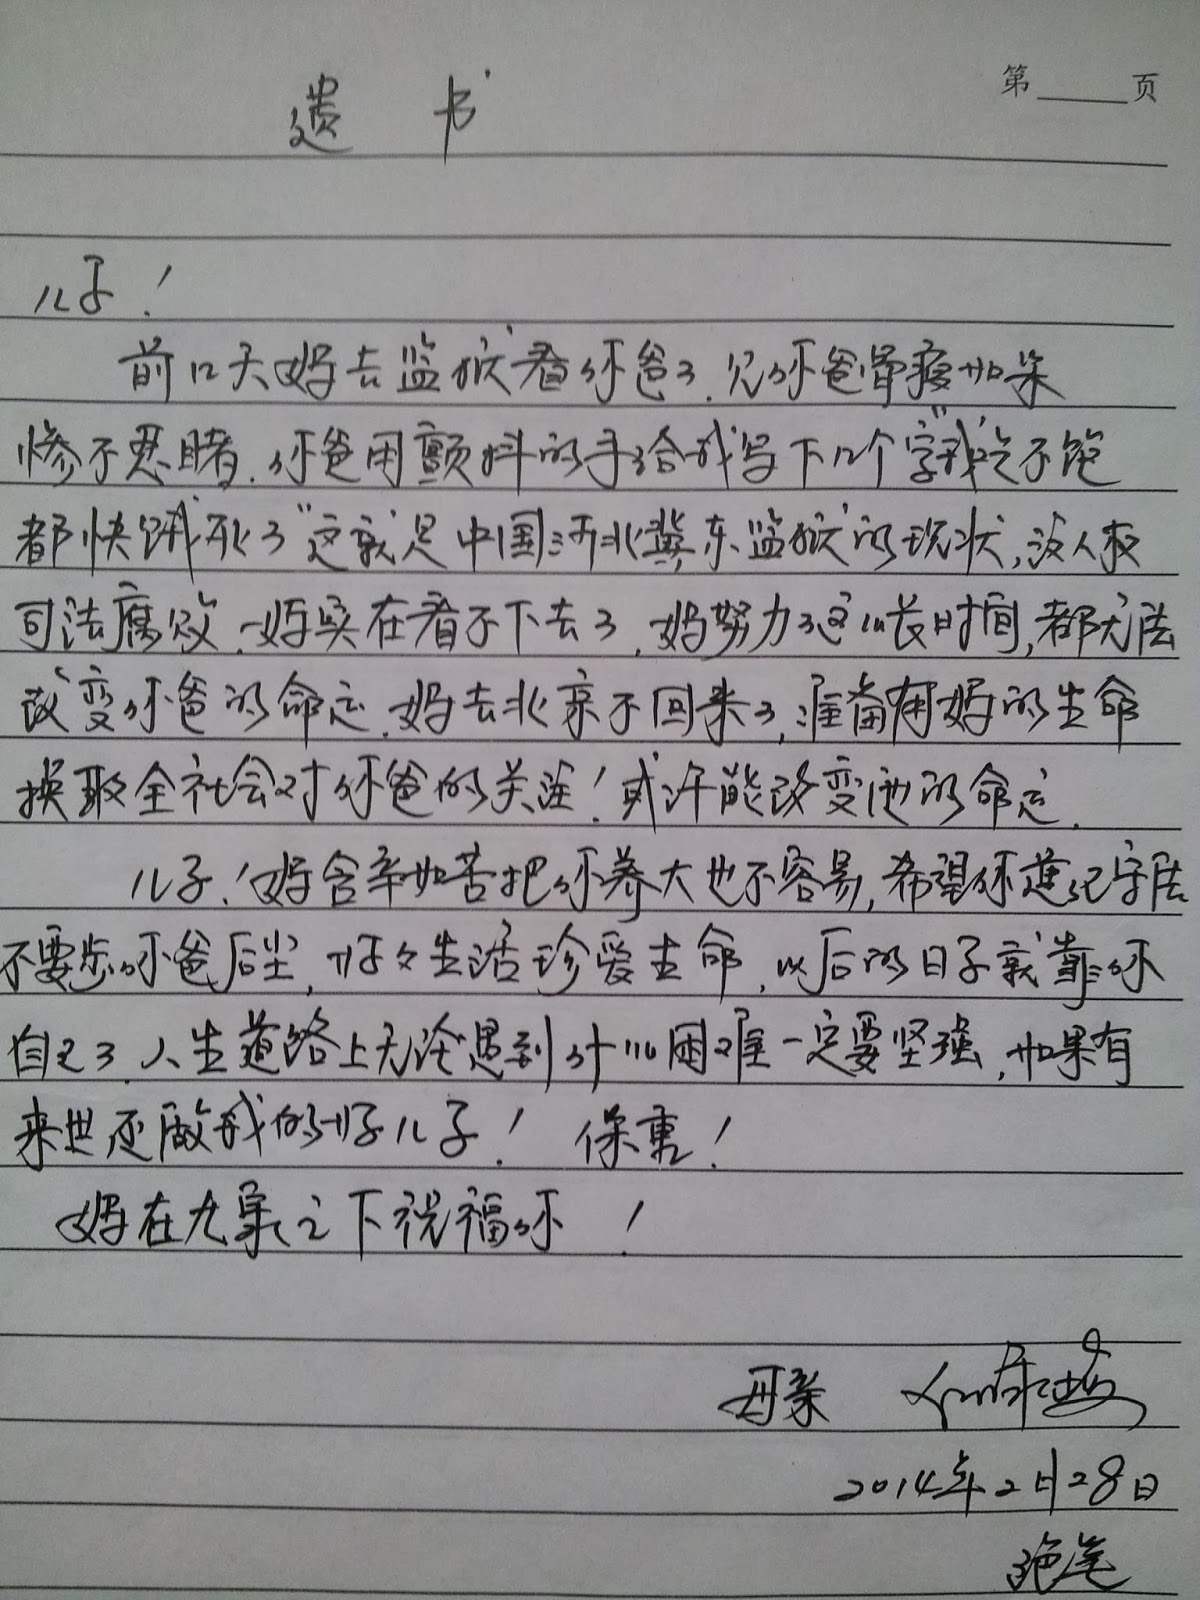 第　　页
遗 书
儿子！
前几天妈去监狱看你爸了.见你爸骨瘦如柴
惨不忍睹.你爸用颤抖的手给我写下几个字"我吃不饱
都快饿死了"这就是中国河北冀东监狱的现状,没人敢
司法腐败.妈实在看不下去了.妈努力了这么长时间,都无法
改变你爸的命运.妈去北京不回来了,准备用妈的生命
换取全社会对你爸的关注！或许能改变他的命运.
儿子！妈含辛如苦把你养大也不容易,希望你遵纪守法
不要步你爸后尘,好好生活珍爱生命,以后的日子就靠你
自己了.人生道路上无论遇到什么困难一定要坚强,如果有
来世还做我的好儿子！保重！
妈在九泉之下祝福你！
母亲
2014年2月28日
绝笔